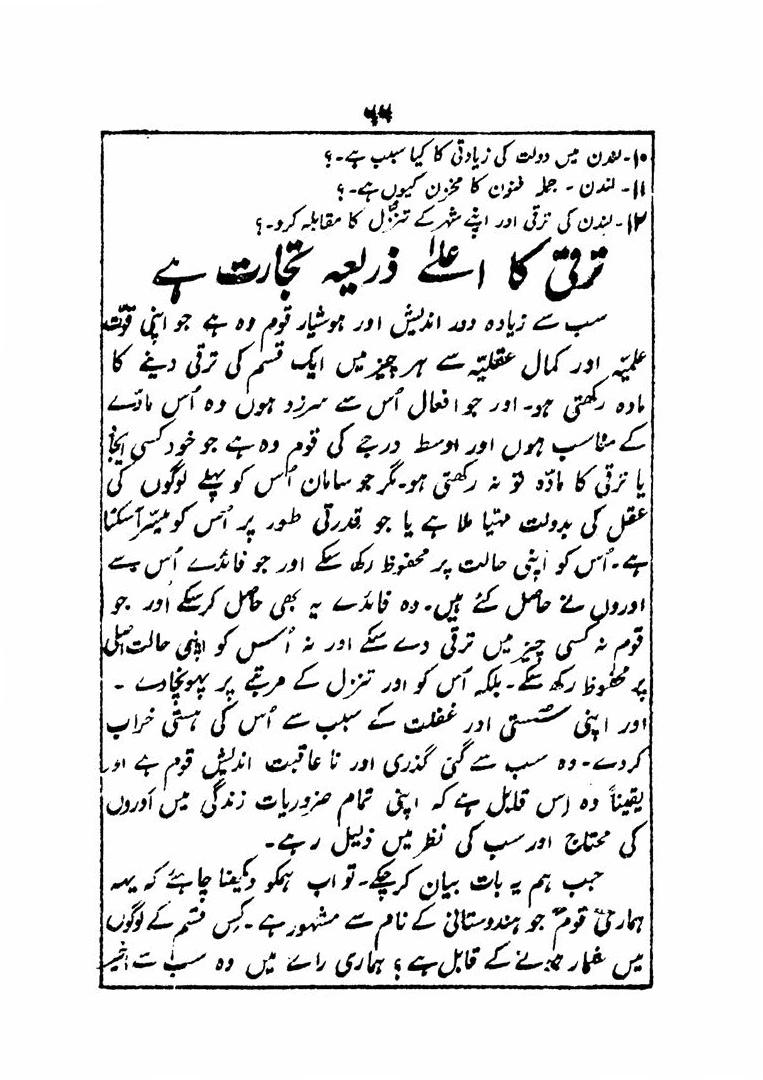 ۱۰۔ لندن میں دولت کی زیادتی کا کیا سبب ہے۔؟
۱۱۔ لندن ۔ جملہ فنون کا مخزن کیوں ہے۔؟
۱۲۔ لندن کی ترقی اور اپنے شہر کے تنزّل کا مقابلہ کرو۔؟
ترقی کا اعلےٰ ذریعہ تجارت ہے
سب سے زیادہ دور اندیش اور ہوشیار قوم وہ ہے جو اپنی قوّت
علمیّہ اور کمال عقلیّہ سے ہر چیز میں ایک قسم کی ترقی دینے کا
مادہ رکھتی ہو۔ اور جو افعال اُس سے سرزد ہوں وہ اُس مادّے
کے مناسب ہوں اور اوسط درجے کی قوم وہ ہے جو خود کسی ایجاد
یا ترقی کا مادّہ تو نہ رکھتی ہو۔ مگر جو سامان اُس کو پہلے لوگوں کی
عقل کی بدولت مہیّا ملا ہے یا جو قدرتی طور پر اُس کو میسّر آسکتا
ہے۔ اُس کو اپنی حالت پر محفوظ رکھ سکے اور جو فائدے اُس سے
اوروں نے حاصل کئے ہیں۔ وہ فائدے یہ بھی حاصل کرسکے اور جو
قوم نہ کسی چیز میں ترقی دے سکے اور نہ اُس کو اپنی حالت اصلی
پر محفوظ رکھ سکے۔ بلکہ اُس کو اور تنزل کے مرتبے پر پہونچادے ۔
اور اپنی سُستی اور غفلت کے سبب سے اُس کی ہستی خراب
کردے۔ وہ سب سے گئی گذری اور نا عاقبت اندیش قوم ہے اور
یقیناً وہ اِس قابل ہے کہ اپنی تمام ضروریات زندگی میں اَوروں
کی محتاج اور سب کی نظر میں ذلیل رہے۔
جب ہم یہ بات بیان کرچکے۔ تو اب ہمکو دیکھنا چاہئے کہ یہہ
ہماری قوم جو ہندوستانی کے نام سے مشہور ہے۔ کس قسم کے لوگوں
میں شمار ہونے کے قابل ہے؟ ہماری راے میں وہ سب سے اخیر